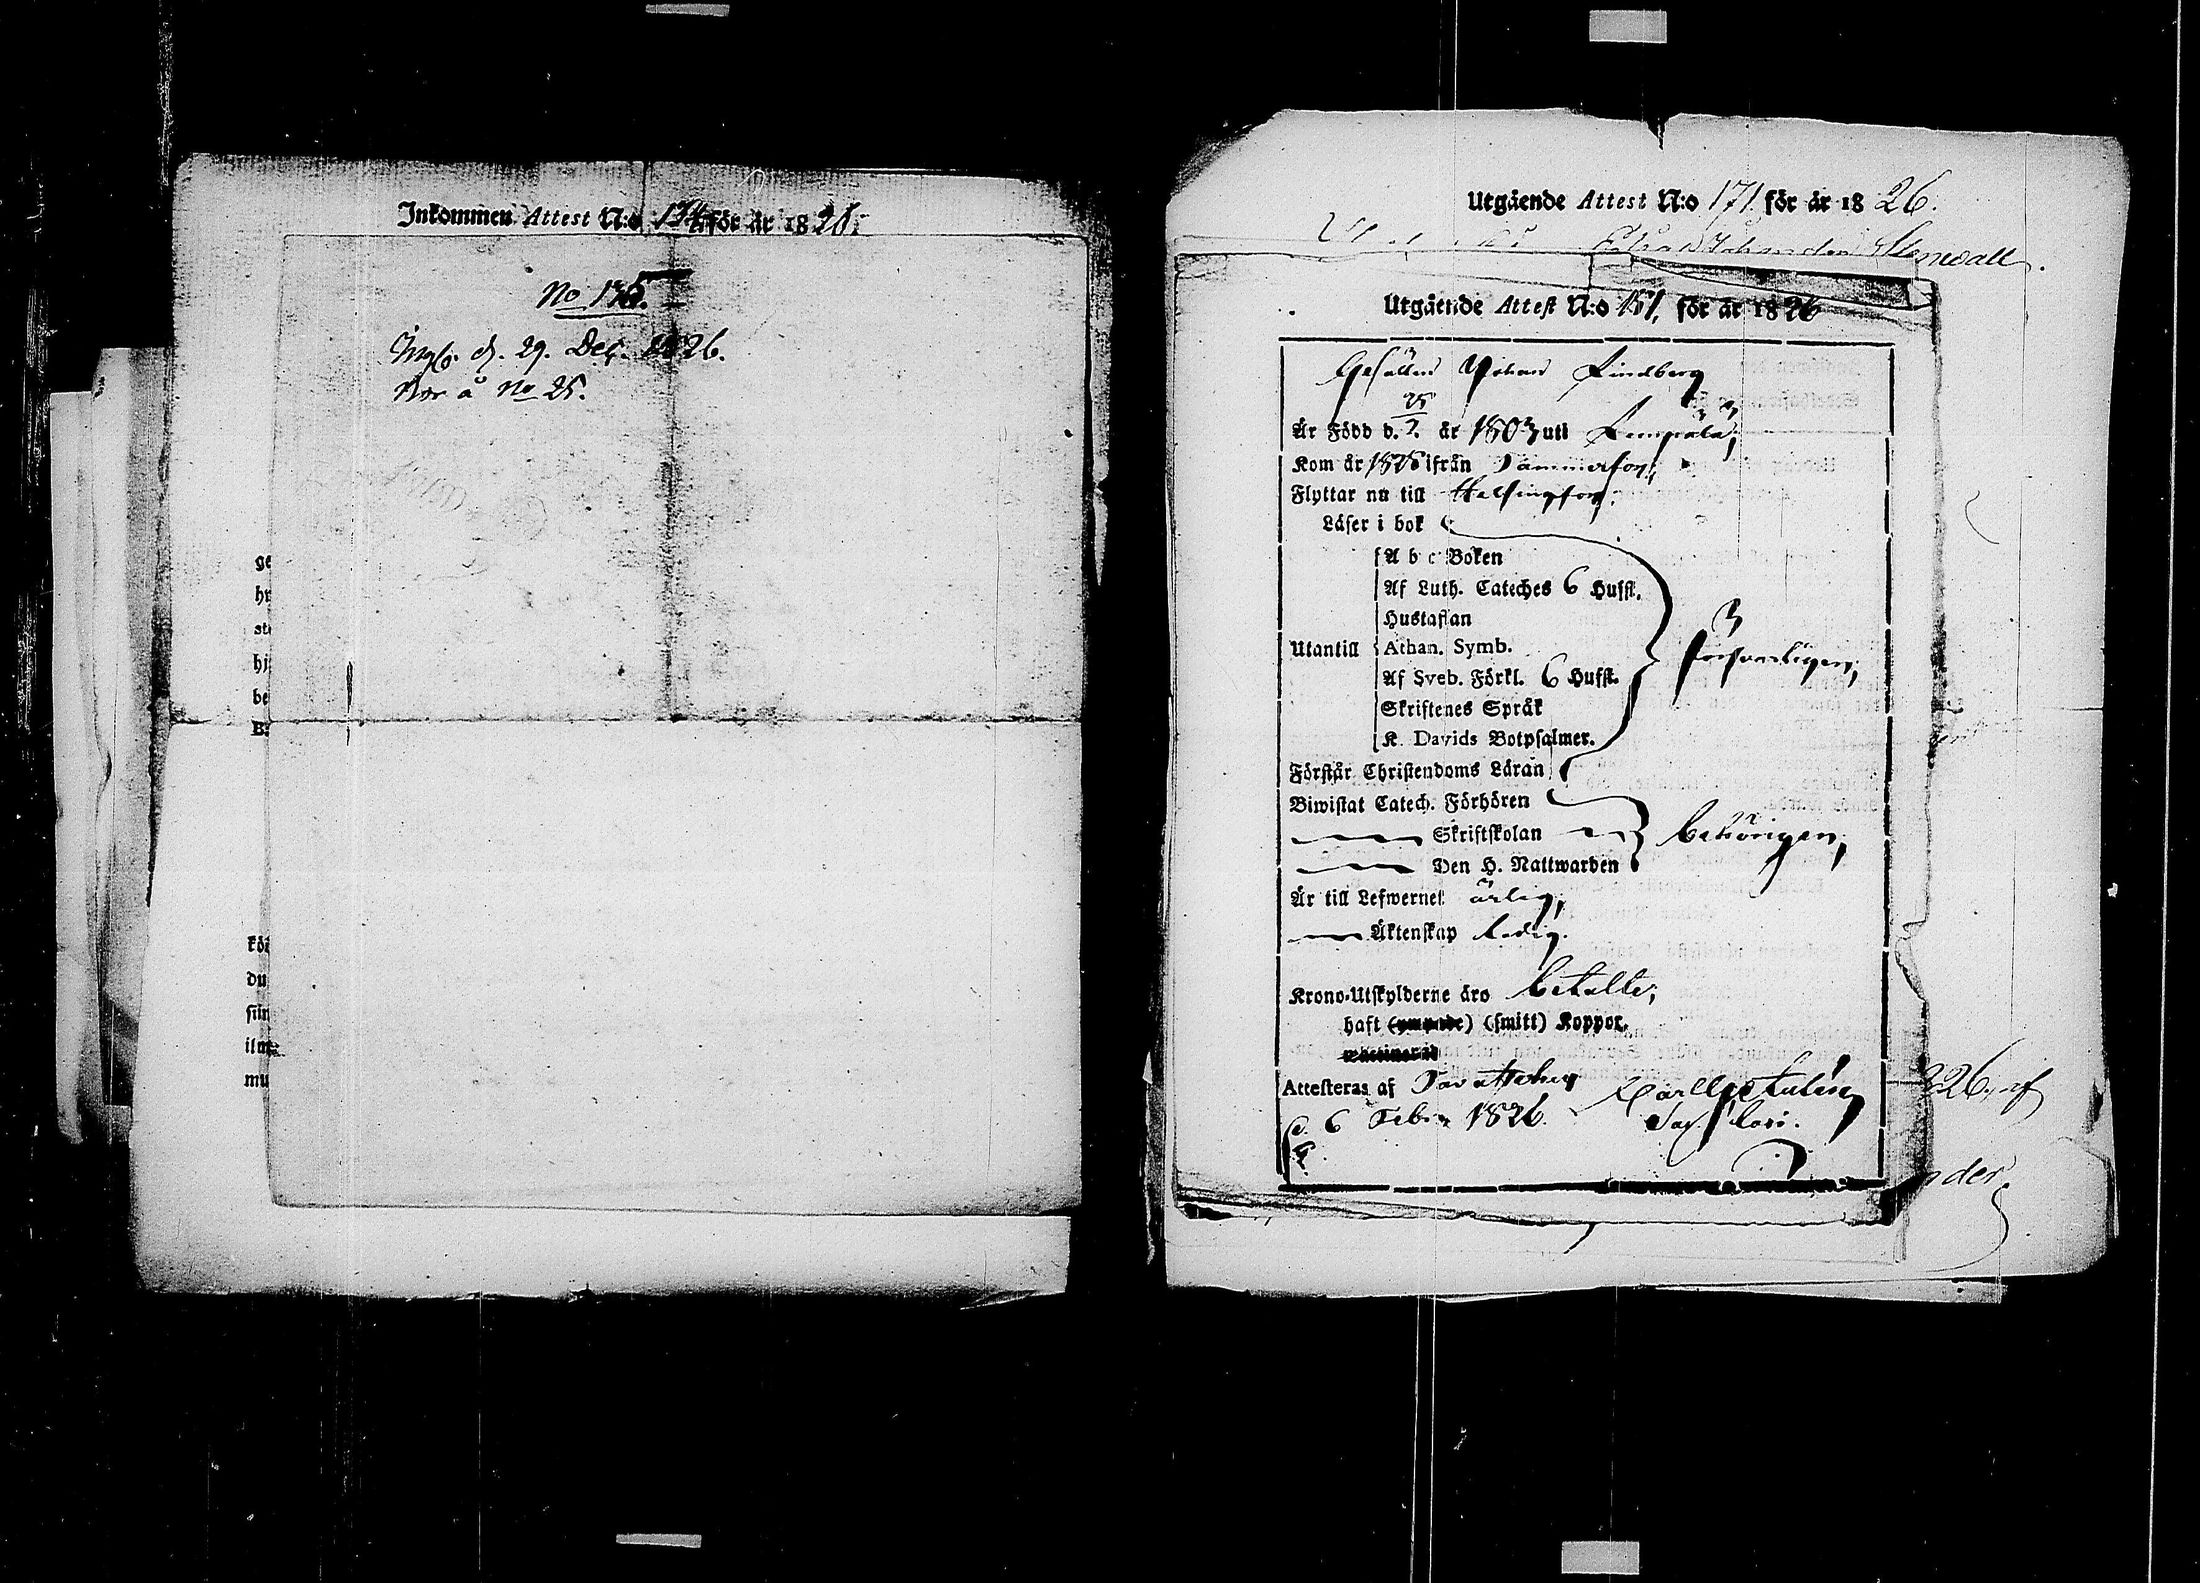 Inkommen Attest N:o 134 för år 1826.
No 135.
d. 29. Dec. 1826.
No 25.
ge
be
du
mu
Utgående Attest N:o 171 för år 1826.
Utgående Attest N:o 151, för år 1826
Gesällen Johan Lindberg
Är Född d. 25/7. år 1803 uti Lempälä;
Kom år 1825 ifrån Tammerfors;
Flyttar nu till Helsingfors;
Läser i bok
A b c Boken
Af Luth. Cateches 6 Hufst.
Hustaflan
Utantill Athan. Symb. försvarligen;
Af Sveb. Förkl. 6 Hufst.
Skriftenes Språk
K. Davids Botpsalmer.
Förstår Christendoms Läran
Biwistat Catech. Förhören
Skriftskolan behörigen;
Den H. Nattwarden
Är till Lefwernet ärlig;
Äktenskap ledig.
Krono-Utskylderne äro betalte;
haft (smitt) Koppor.
Attesteras af Tavastehus
d. 6 Febr. 1826.
826, af
nder.